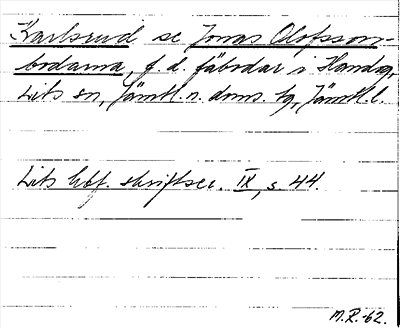 Karlsrud se Jonas Olofsson-
bodarna, f. d. fäbodar i Handog,
Lits sn, Jämtl. n. doms. tg, Jämtl. l.
Lits hbf. skriftser. IX, s. 44
M.R.-62.